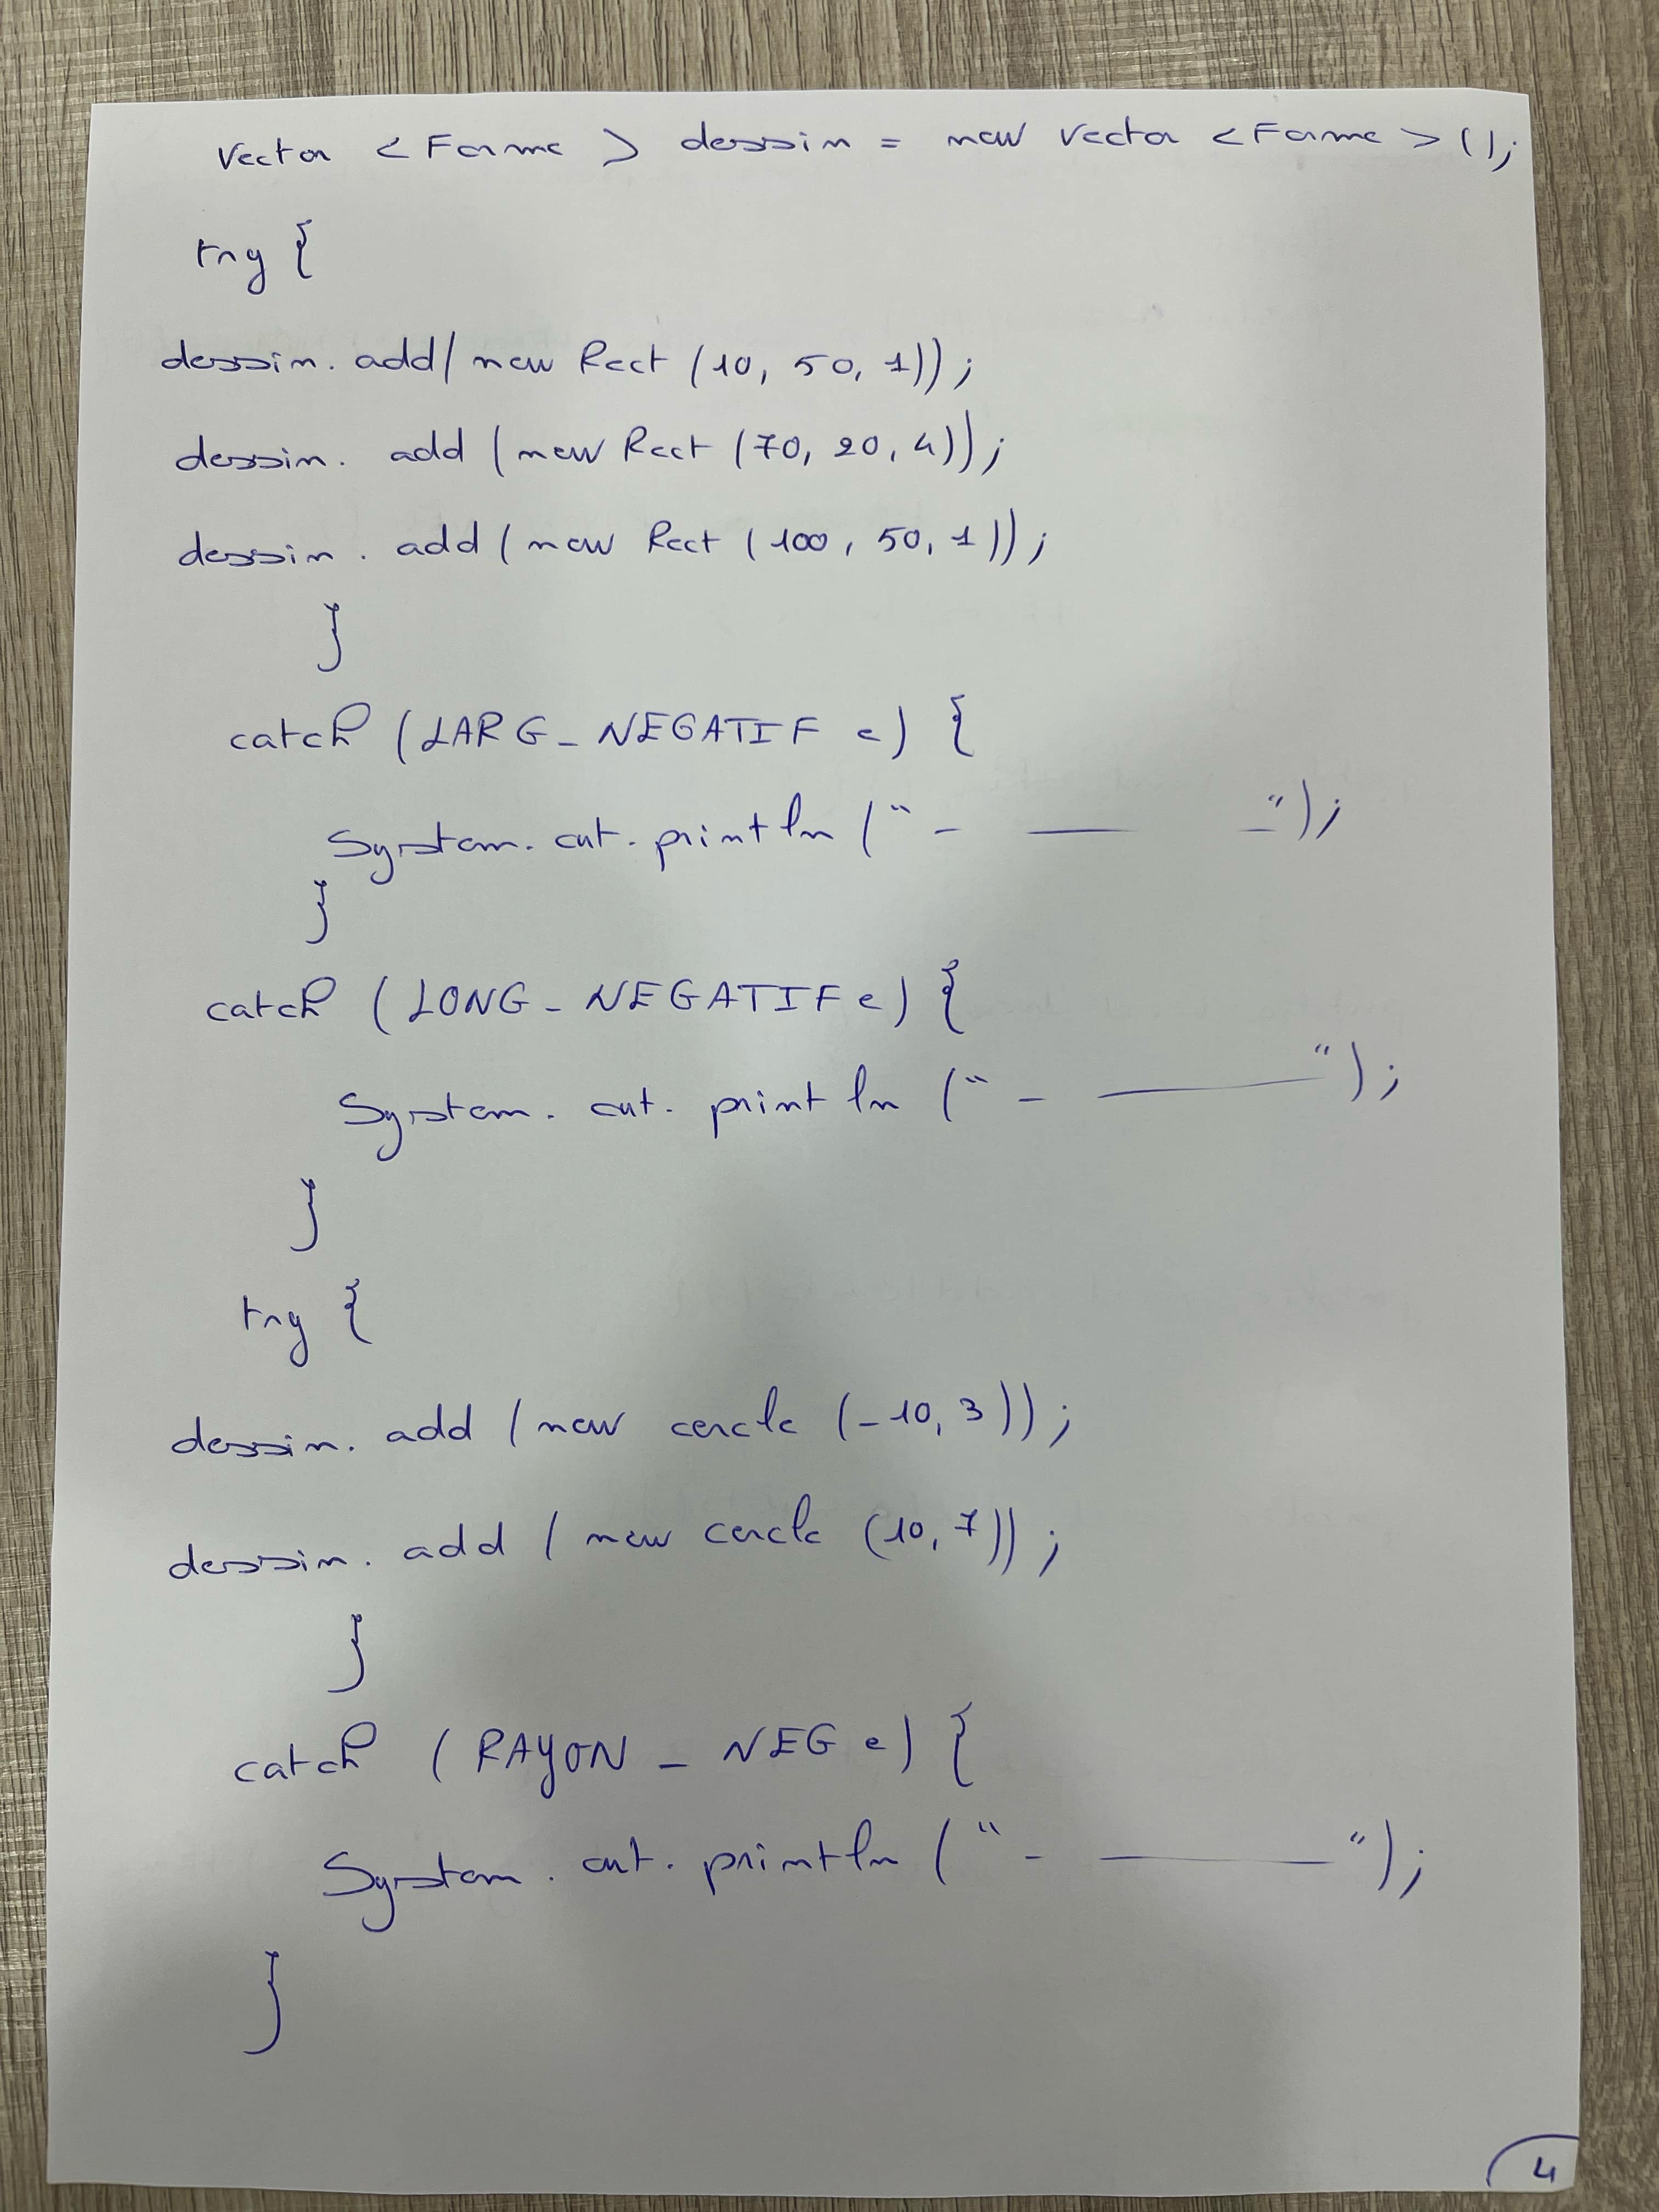 Vector < Forme > dessin = new Vector < Forme > ();
try {
dessin. add( new Rect (10, 50, 1));
dessin. add (new Rect (70, 20, 4));
dessin. add (new Rect (100, 50, 1));
}
catch (LARG_NEGATIF e) {
System. out. println ("- — -");
}
catch (LONG_NEGATIF e) {
System. out. println ("- —");
}
try {
dessin. add (new cercle (-10, 3));
dessin. add (new cercle (10, 7));
}
catch (RAYON_NEG e) {
System. out. println ("- —");
}
4